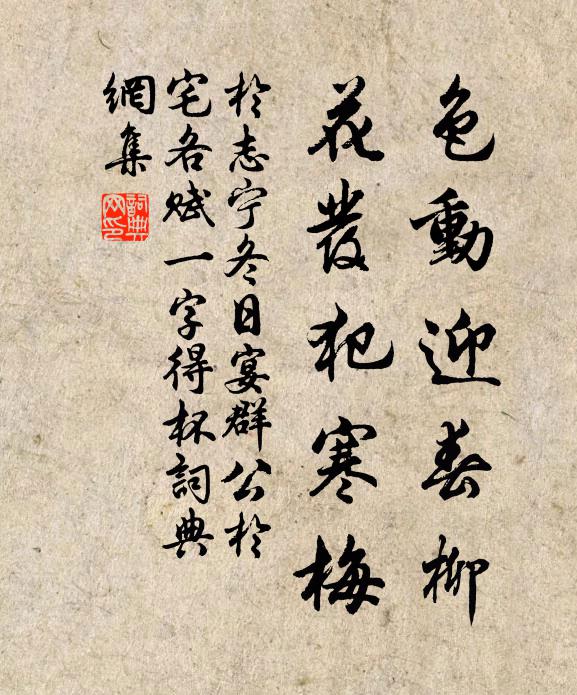 色動迎春柳
花發犯寒梅
於志宁冬日宴群公於
宅各赋一字得杯詞典
網集
詞典
网印